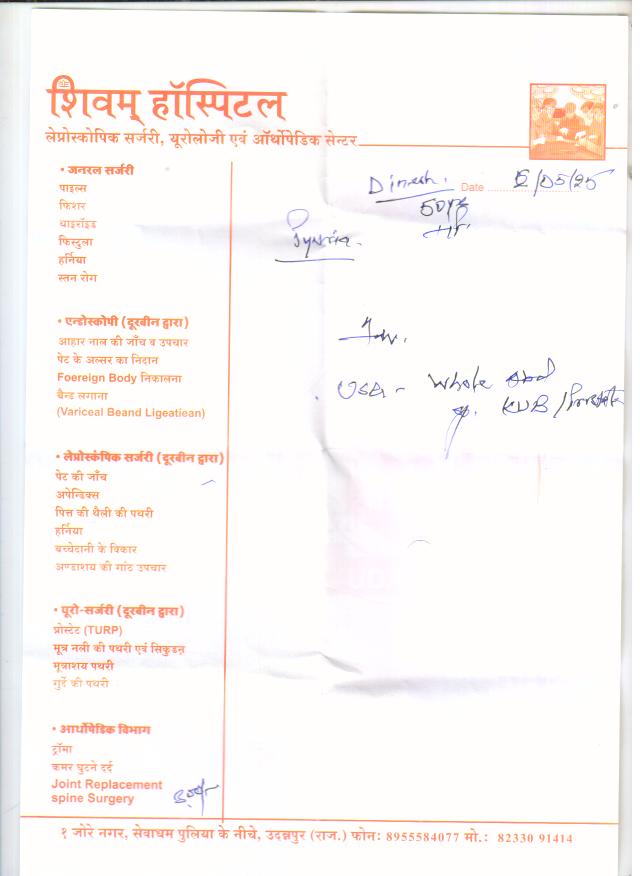 शिवम् हॉस्पिटल
लेप्रोस्कोपिक सर्जरी, यूरोलोजी एवं ऑर्थोपेडिक सेन्टर
Dinesh. Date ........ /05/25
50yr
Inv.
USG - Whole abd
KUB / Prostate
• जनरल सर्जरी
पाइल्स
फिशर
थाइरॉइड
फिस्टुला
हर्निया
स्तन रोग
• एन्डोस्कोपी (दूरबीन द्वारा)
आहार नाल की जाँच व उपचार
पेट के अल्सर का निदान
Foereign Body निकालना
बैन्ड लगाना
(Variceal Beand Ligeatiean)
• लेप्रोस्कंपिक सर्जरी (दूरबीन द्वारा)
पेट की जाँच
अपेन्डिक्स
पित्त की थैली की पथरी
हर्निया
बच्चेदानी के विकार
अण्डाशय की गांठ उपचार
• यूरो-सर्जरी (दूरबीन द्वारा)
प्रोस्टेट (TURP)
मूत्र नली की पथरी एवं सिकुडन
मूत्राशय पथरी
गुर्दे की पथरी
• आर्थोपेडिक विभाग
ट्रॉमा
कमर घुटने दर्द
Joint Replacement
spine Surgery
१ जोरे नगर, सेवाधम पुलिया के नीचे, उदन्नपुर (राज.) फोन: 8955584077 मो.: 82330 91414